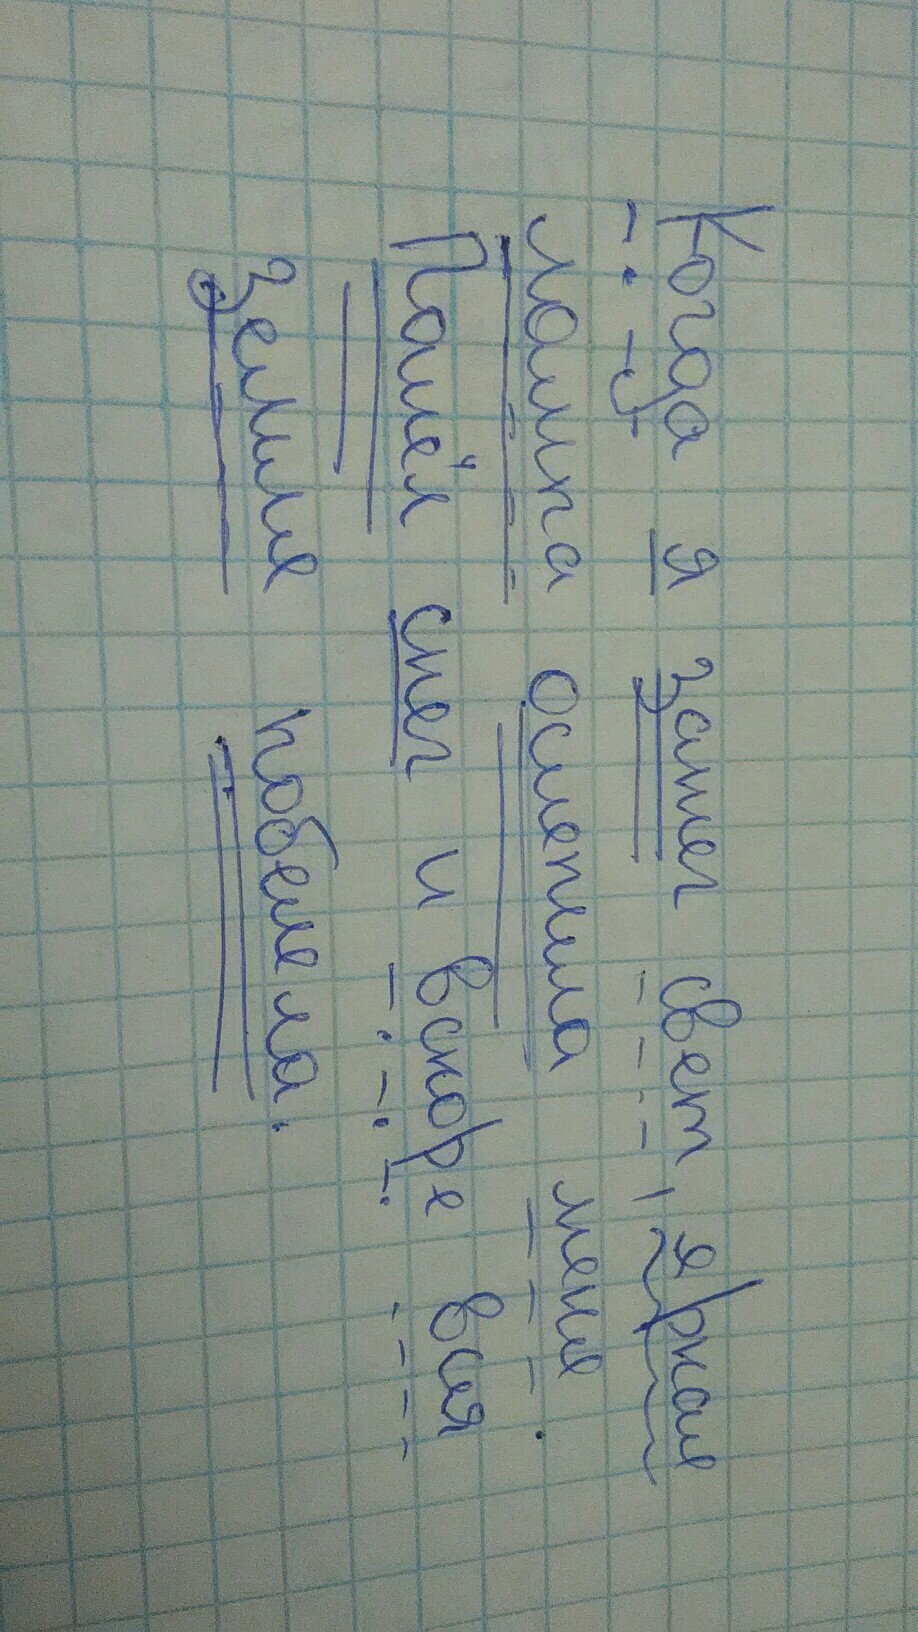 Когда я зажег свет, яркая
лампа ослепила меня.
Пошёл снег и вскоре вся
Земля побелела.